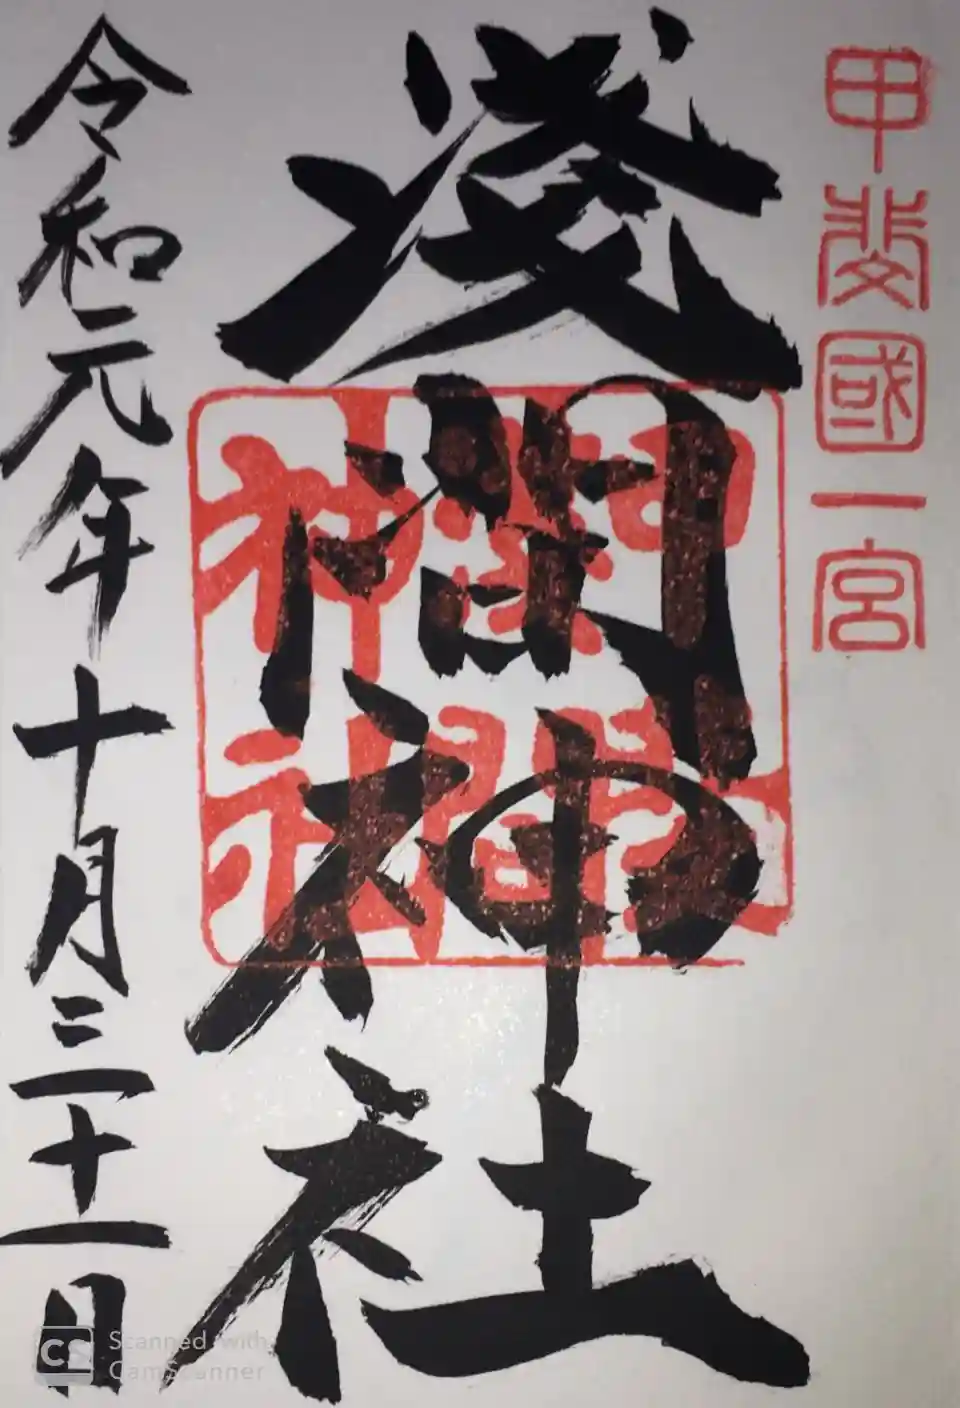 甲斐國一宮
淺間神社
甲斐
淺間
神社
令和元年十月三十一日
CS Scanned with
CamScanner